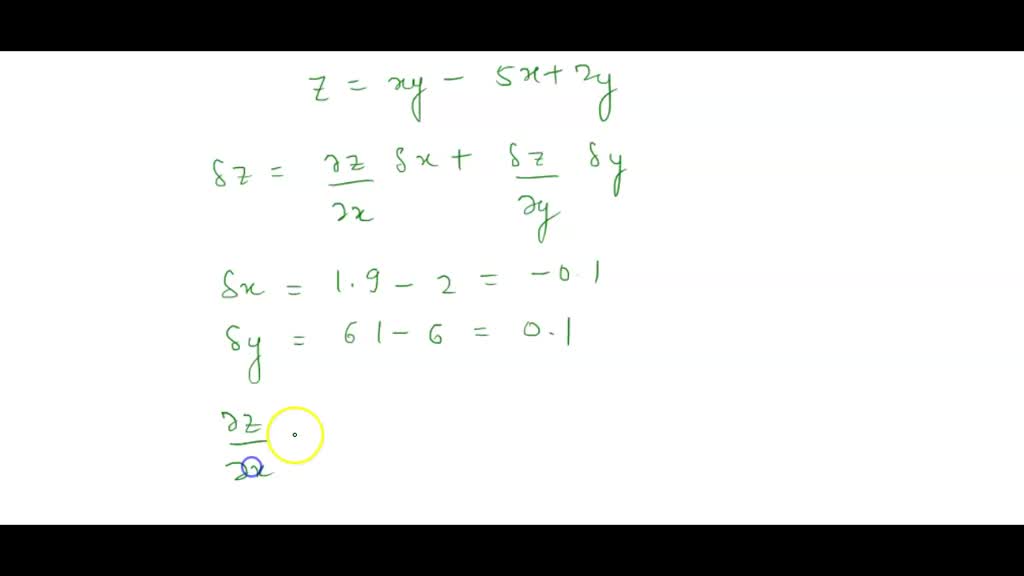 z = xy - 5x + 2y
δz = ∂z/∂x δx + δz/∂y δy
δx = 1.9 - 2 = -0.1
δy = 6 1 - 6 = 0.1
∂z/∂x